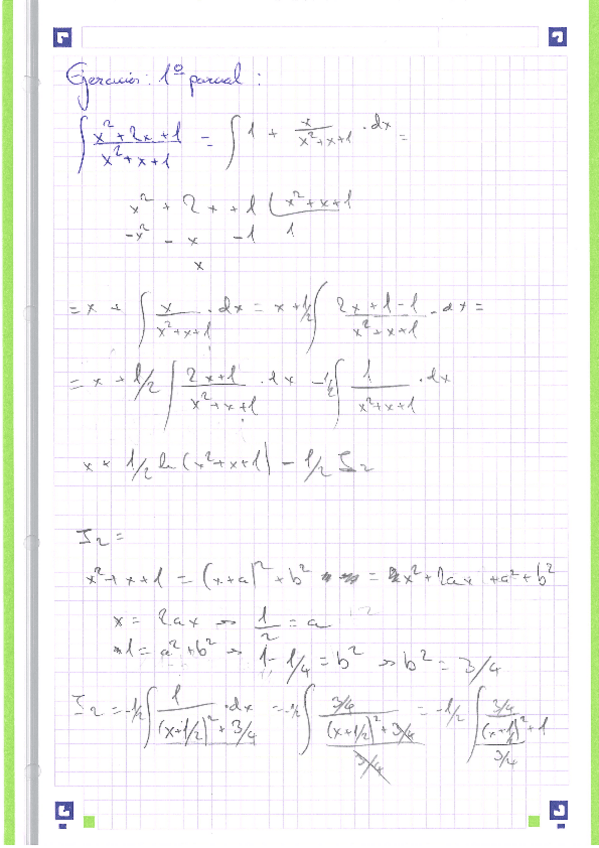 Ejercicios: 1º parcial:
∫ (x²+2x+1)/(x²+x+1) = ∫ 1 + x/(x²+x+1) · dx =
x² + 2x + 1 | x²+x+1
-x² - x -1    1
x
= x + ∫ x/(x²+x+1) · dx = x + 1/2 ∫ (2x+1-1)/(x²+x+1) · dx =
= x + 1/2 ∫ (2x+1)/(x²+x+1) · dx - 1/2 ∫ 1/(x²+x+1) · dx
x + 1/2 ln(x²+x+1) - 1/2 I₂
I₂ =
x²+x+1 = (x+a)²+b² = x²+2ax+a²+b²
x = 2ax → 1/2 = a
1 = a²+b² → 1 - 1/4 = b² → b² = 3/4
I₂ = -1/2 ∫ 1/((x+1/2)²+3/4) · dx = -1/2 ∫ (3/4)/(((x+1/2)²+3/4)/(3/4)) = -1/2 ∫ (3/4)/((x+1/2)²/(3/4)+1)